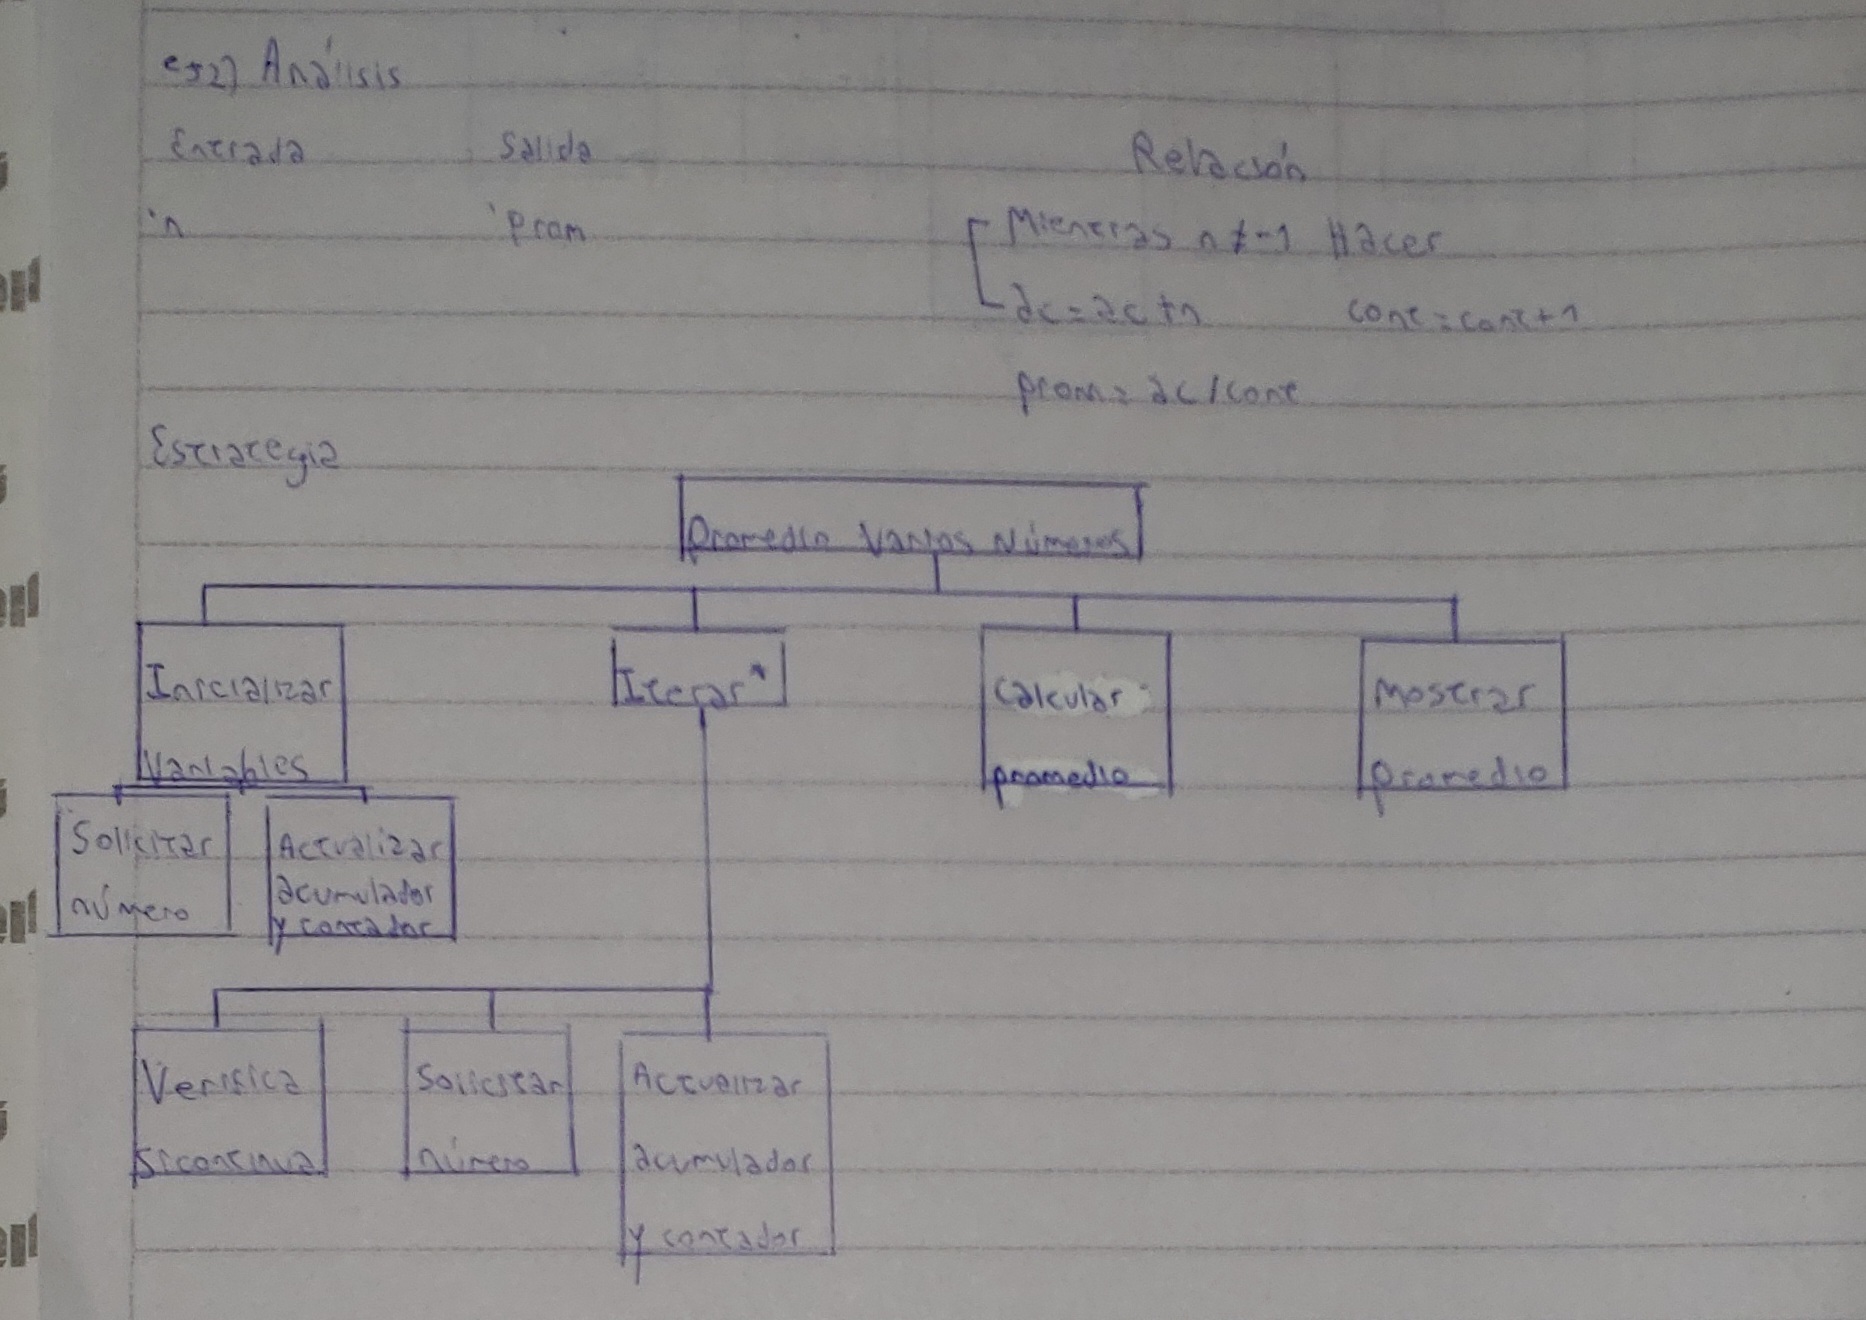 ej2) Análisis
Entrada Salida Relación
'n 'Prom Mientras n≠-1 Hacer
ac=ac+n cont=cont+1
prom=ac/cont
Estrategia
Promedio Varios Números
Inicializar Variables
Iterar*
Calcular promedio
Mostrar promedio
Solicitar número
Actualizar acumulador y contador
Verifica si continua
Solicitar número
Actualizar acumulador y contador